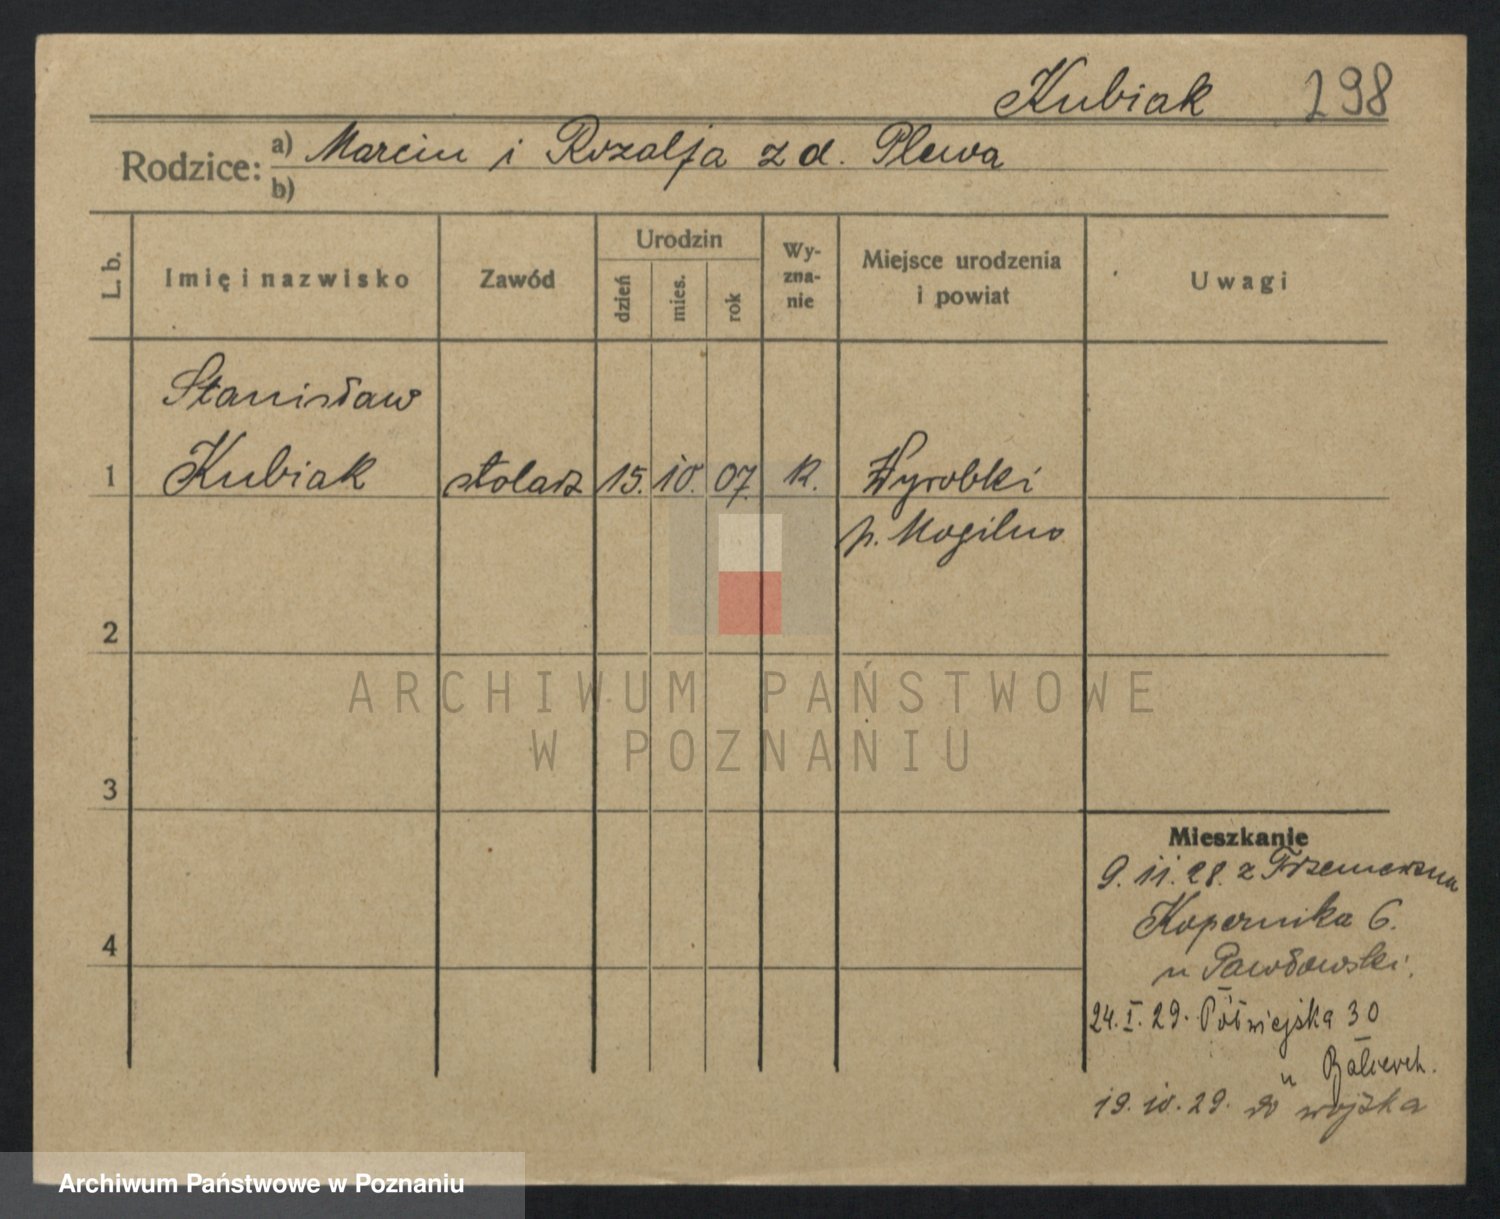 Kubiak 298
Rodzice: a) Marcin i Rozalja z d. Plewa
b)
L. b.
Imię i nazwisko
Zawód
Urodzin
dzień
mies.
rok
Wy-
zna-
nie
Miejsce urodzenia
i powiat
Uwagi
Stanisław
1 Kubiak stolarz 15. 10. 07. k. Wyrobki
p. Mogilno
2
ARCHIWUM PAŃSTWOWE
W POZNANIU
3
Mieszkanie
9. 11. 28. z Trzemeszna
Kopernika 6.
4
u Pawłowski.
24. I. 29. Półwiejska 30
u
19. 10. 29. do wojska
Archiwum Państwowe w Poznaniu